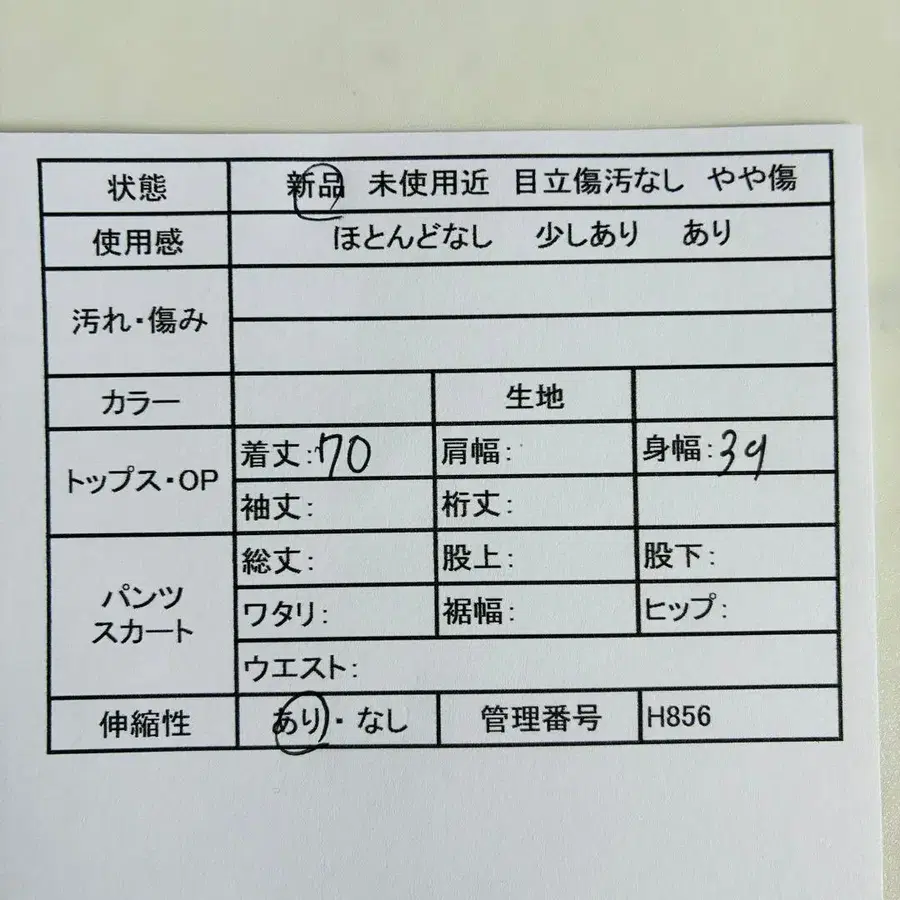 状態 新品 未使用近 目立傷汚なし やや傷
使用感 ほとんどなし 少しあり あり
汚れ・傷み
カラー 生地
トップス・OP
着丈:70 肩幅: 身幅:39
袖丈: 裄丈:
パンツ
スカート
総丈: 股上: 股下:
ワタリ: 裾幅: ヒップ:
ウエスト:
伸縮性 あり・なし 管理番号 H856